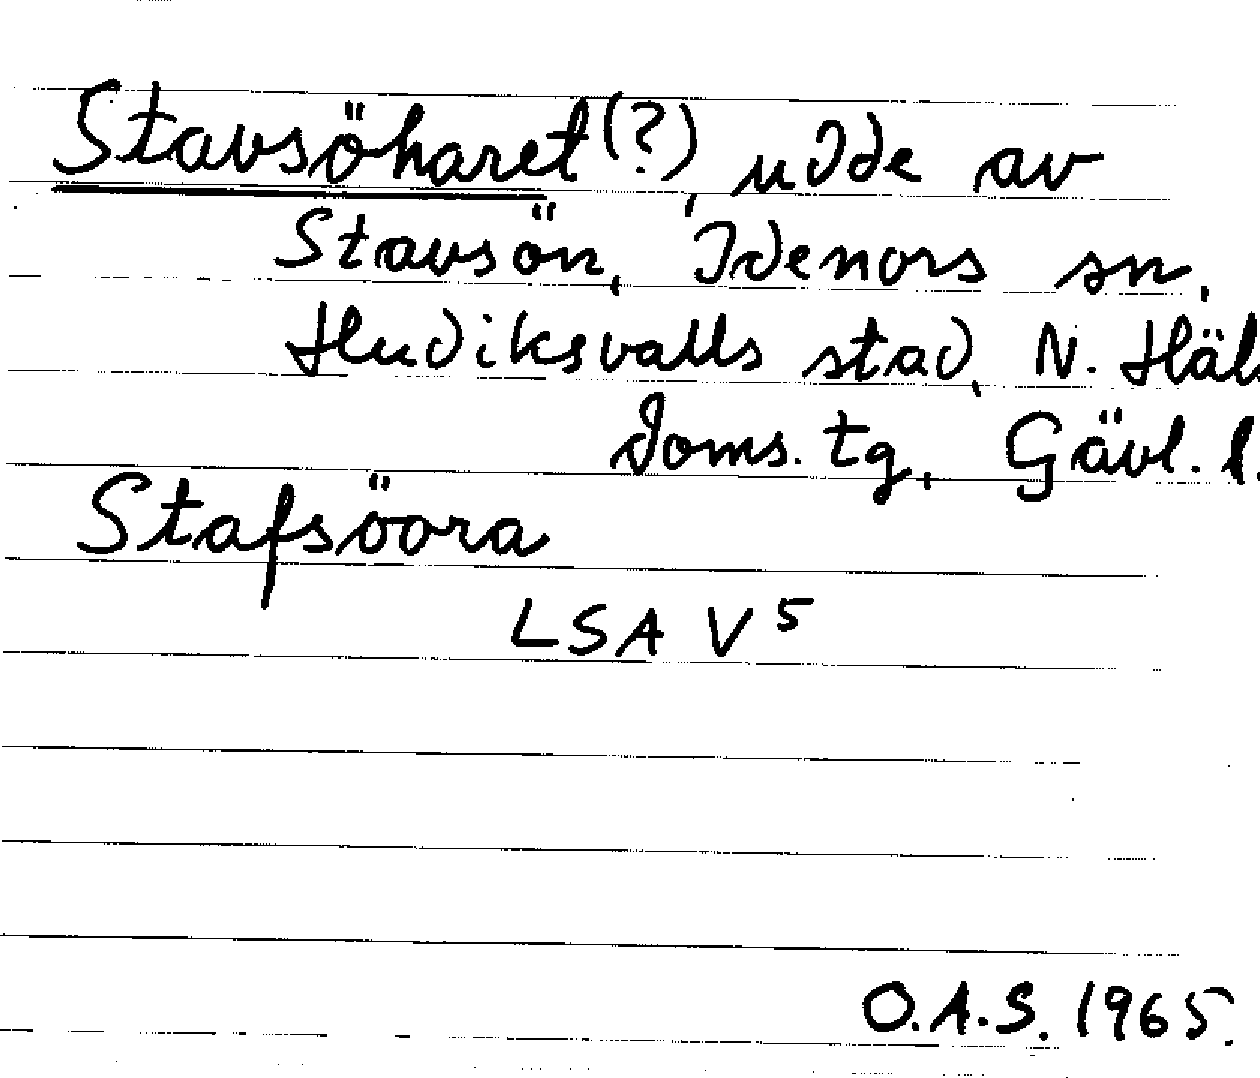 Stavsöharet(?), udde av
Stavsön, Idenors sn,
Hudiksvalls stad, N. Häls
doms. tg, Gävl. l.
Stafsööra
LSA V 5
O.A.S. 1965.